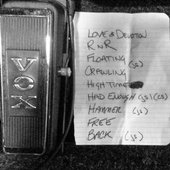 VOX
LOVE & DEVOTION
R N R
FLOATING (js)
CRAWLING
HIGH TIME
HAD ENOUGH (js) (cs)
HAMMER (js)
FREE
BACK (js)